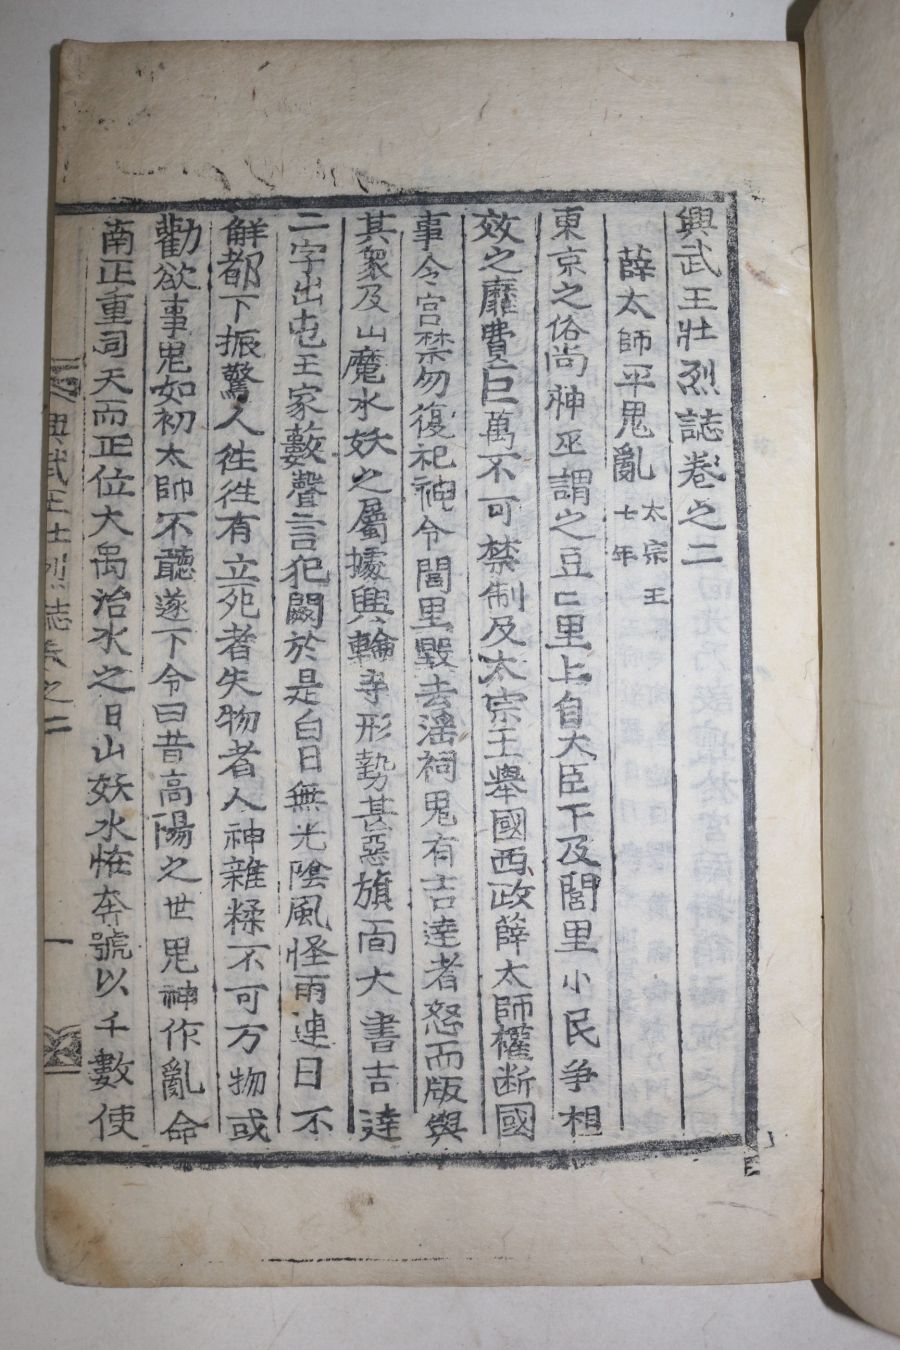 興武王壯烈誌卷之二
薛太師平鬼亂 太宗王七年
東京之俗尚神巫謂之豆豆里上自大臣下及閭里小民争相
效之靡費巨萬不可禁制及太宗王舉國西政薛太師權断國
事令宫禁勿復祀神令閭里毀去滛祠鬼有吉達者怒而版與
其衆及山魔水妖之屬據興輪寺形勢甚惡旗面大書吉達
二字出屯王家藪聲言犯闕於是白日無光陰風怪雨連日不
解都下振驚人徃徃有立死者失物者人神雜糅不可方物或
勸欲事鬼如初太師不聽遂下令曰昔高陽之世鬼神作亂命
南正重司天而正位大禹治水之日山妖水恠奔號以千數使
興武王壯烈誌卷之二
一